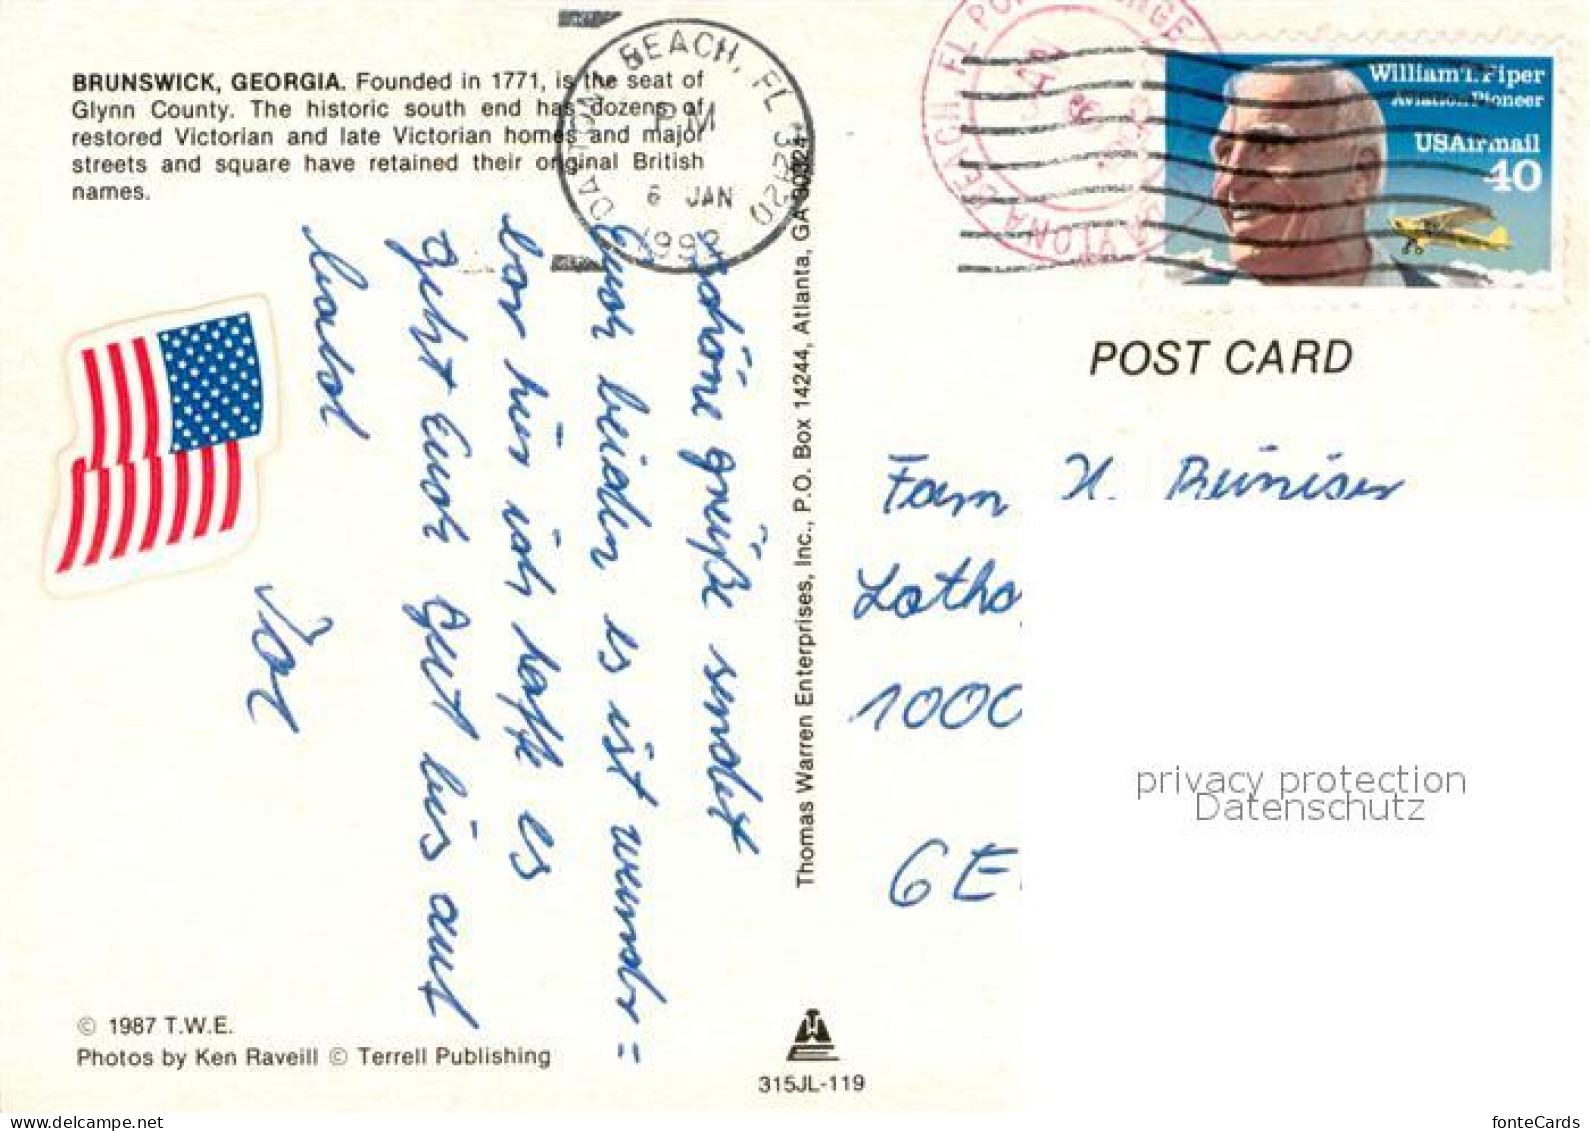 BRUNSWICK, GEORGIA. Founded in 1771, is the seat of
Glynn County. The historic south end has dozens of
restored Victorian and late Victorian homes and major
streets and square have retained their original British
names.
BEACH, FL 32920
PM
6 JAN
1992
William T. Piper
Aviation Pioneer
USAirmail
40
POST CARD
schöne grüße sendet
Euch beiden es ist wunder=
bar hier ich hoffe es
geht Euch gut bis aut
bald
Thomas Warren Enterprises, Inc., P.O. Box 14244, Atlanta, GA 30324
Fam H.
Lotha
1000
GE
privacy protection
Datenschutz
© 1987 T.W.E.
Photos by Ken Raveill © Terrell Publishing
315JL-119
www.fontecards.com
fonteCards